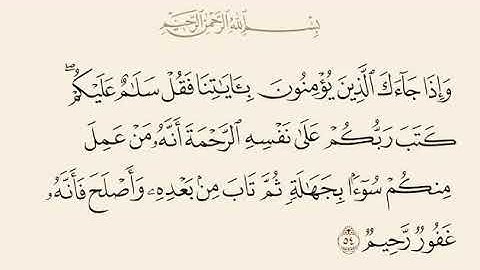 بِسْمِ ٱللَّهِ ٱلرَّحْمَٰنِ ٱلرَّحِيمِ
وَإِذَا جَآءَكَ ٱلَّذِينَ يُؤْمِنُونَ بِـَٔايَٰتِنَا فَقُلْ سَلَٰمٌ عَلَيْكُمْ ۖ
كَتَبَ رَبُّكُمْ عَلَىٰ نَفْسِهِ ٱلرَّحْمَةَ أَنَّهُۥ مَنْ عَمِلَ
مِنكُمْ سُوٓءًۢا بِجَهَٰلَةٍ ثُمَّ تَابَ مِنۢ بَعْدِهِۦ وَأَصْلَحَ فَأَنَّهُۥ
غَفُورٌ رَّحِيمٌ ٥٤